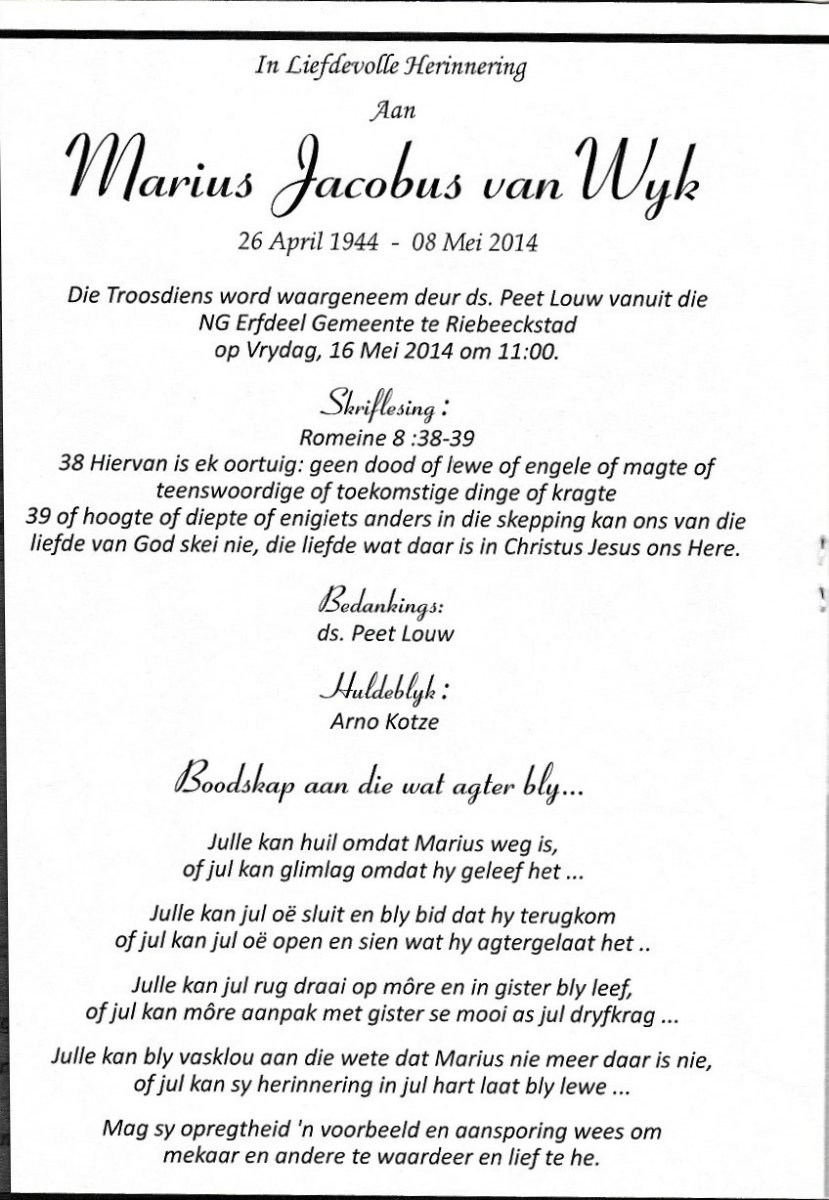 In Liefdevolle Herinnering
Aan
Marius Jacobus van Wyk
26 April 1944 - 08 Mei 2014
Die Troosdiens word waargeneem deur ds. Peet Louw vanuit die
NG Erfdeel Gemeente te Riebeeckstad
op Vrydag, 16 Mei 2014 om 11:00.
Skriflesing :
Romeine 8 :38-39
38 Hiervan is ek oortuig: geen dood of lewe of engele of magte of
teenswoordige of toekomstige dinge of kragte
39 of hoogte of diepte of enigiets anders in die skepping kan ons van die
liefde van God skei nie, die liefde wat daar is in Christus Jesus ons Here.
Bedankings:
ds. Peet Louw
Huldeblyk :
Arno Kotze
Boodskap aan die wat agter bly...
Julle kan huil omdat Marius weg is,
of jul kan glimlag omdat hy geleef het ...
Julle kan jul oë sluit en bly bid dat hy terugkom
of jul kan jul oë open en sien wat hy agtergelaat het ..
Julle kan jul rug draai op môre en in gister bly leef,
of jul kan môre aanpak met gister se mooi as jul dryfkrag ...
Julle kan bly vasklou aan die wete dat Marius nie meer daar is nie,
of jul kan sy herinnering in jul hart laat bly lewe ...
Mag sy opregtheid 'n voorbeeld en aansporing wees om
mekaar en andere te waardeer en lief te he.